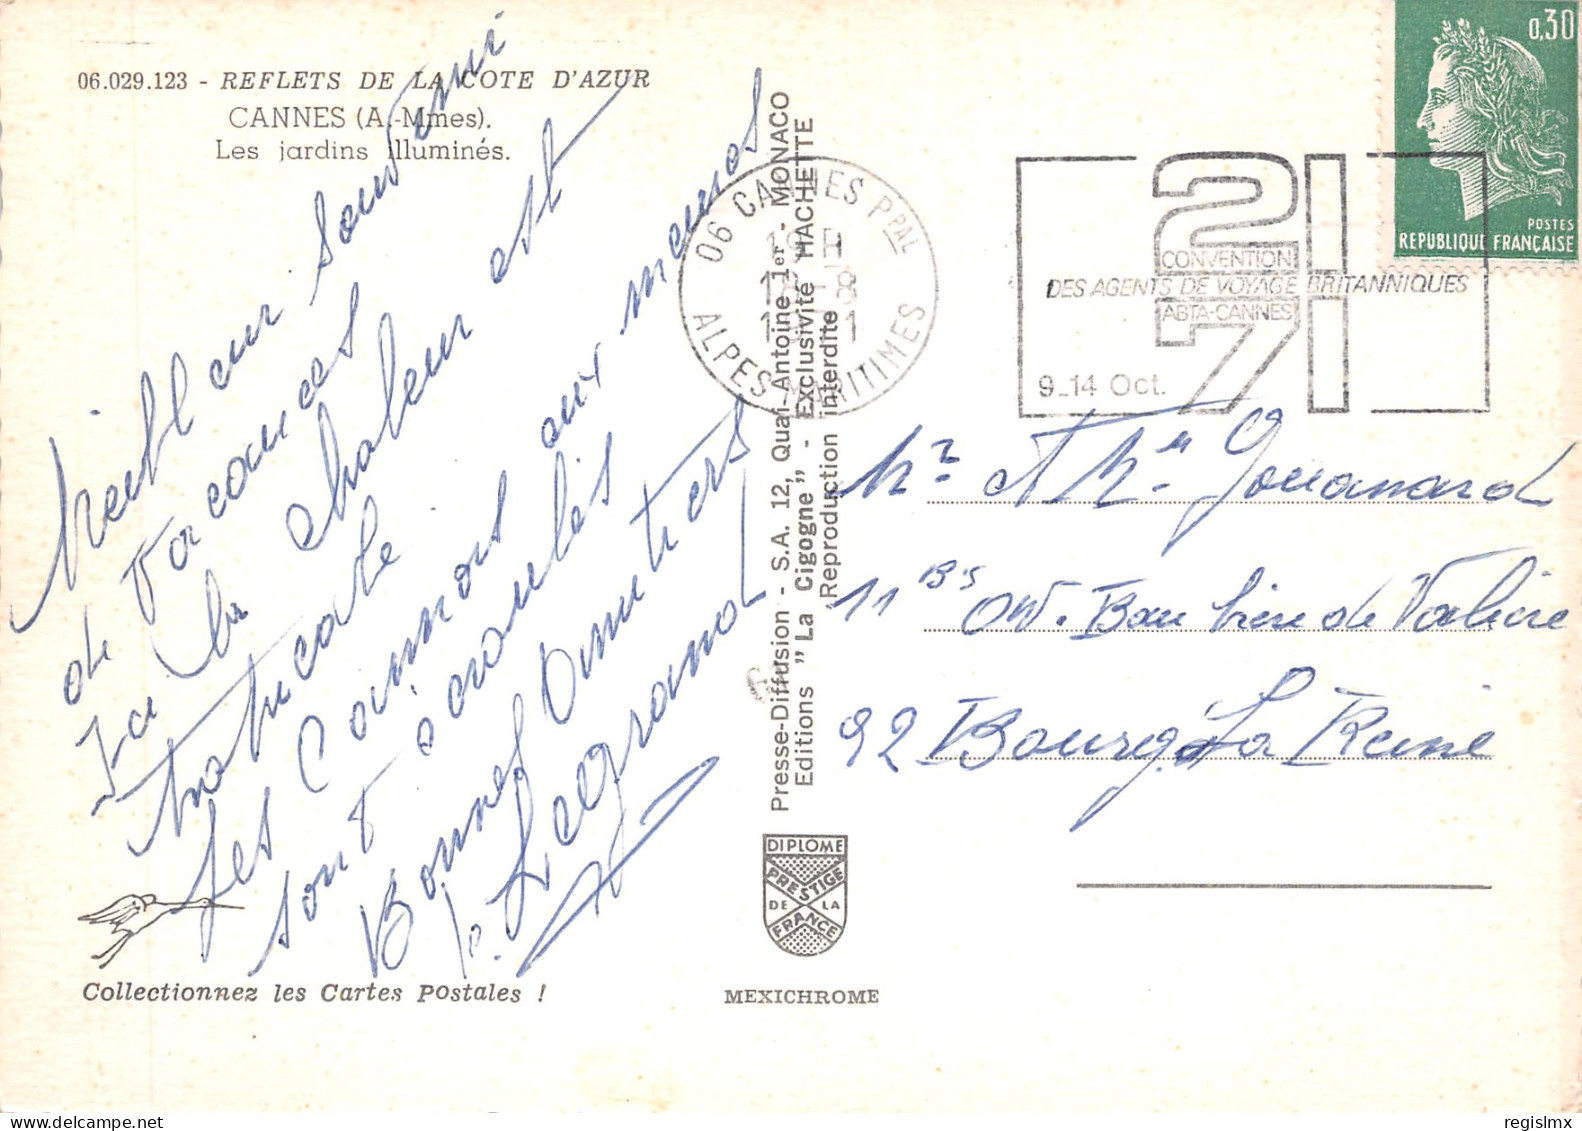 06.029.123 - REFLETS DE LA COTE D'AZUR
CANNES (A.-Mmes).
Les jardins illuminés.
Meilleur souvenir
de vacances
Ici la chaleur est
tropicale
les Cannois aux menus
sont écroulés
Bonnes Amitiés
Legrand
Collectionnez les Cartes Postales !
Presse-Diffusion - S.A. 12, Quai Antoine 1er - MONACO
Editions "La Cigogne" - Exclusivité HACHETTE
Reproduction interdite
DIPLOME
PRESTIGE
DE LA
FRANCE
MEXICHROME
06 CANNES PPAL
19H
18-8
1971
ALPES MARITIMES
21
CONVENTION
DES AGENTS DE VOYAGE BRITANNIQUES
ABTA-CANNES
71
9_14 Oct.
0,30
POSTES
REPUBLIQUE FRANÇAISE
Mr et Me Jouanard
11 Bis
92 Bourg La Reine
regislmx